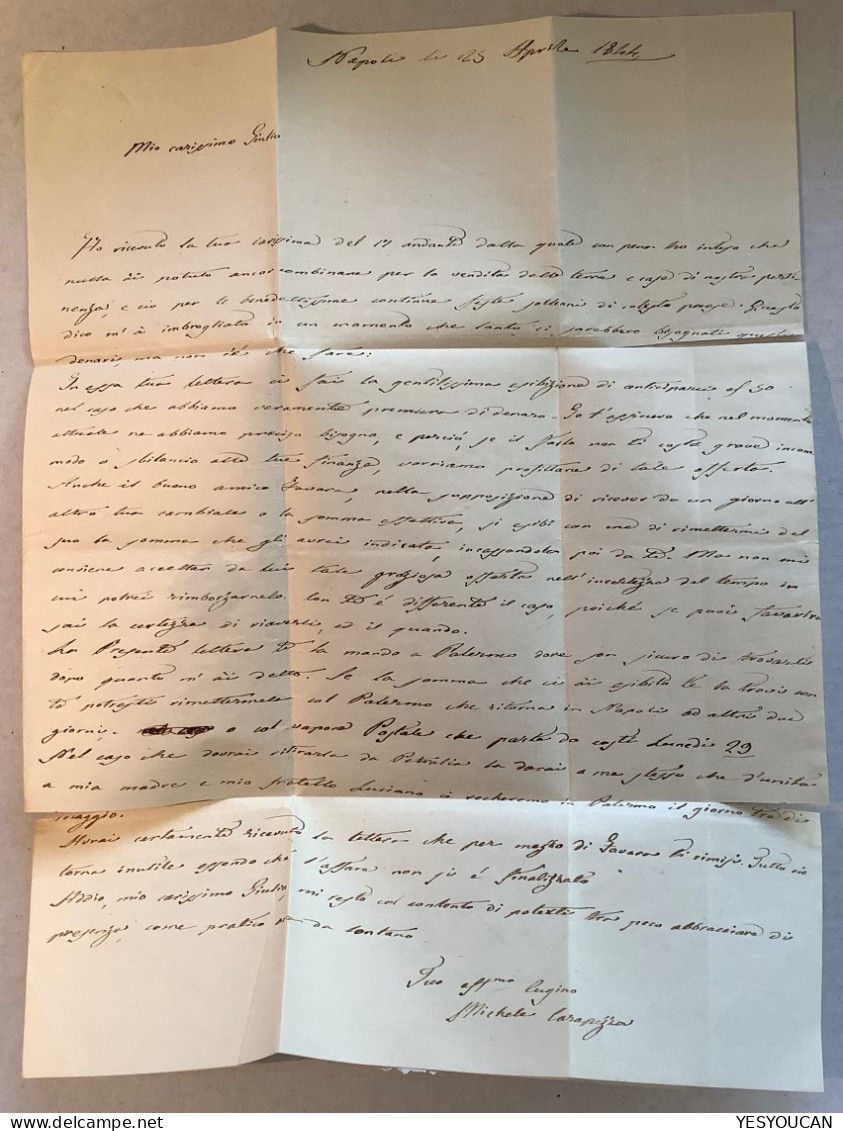 Napoli li 25 Aprile 1844
Mio carissimo Giulio
Ho ricevuto la tua carissima del 17 andante dalla quale con pena ho inteso che
nulla ài potuto ancor combinare per la vendita delle terre e case di nostra perti
nenza, e ciò per le benedettissime continue feste di codesto paese. Questo
dico m'à imbrogliato in un momento che tanto ci sarebbero bisognati questi
denari, ma non v'è che fare:
In essa tua lettera ci fai la gentilissima esibizione di anticiparci 50
nel caso che abbiamo veramente premura di denaro. Io t'assicuro che nel momento
attuale ne abbiamo preciso bisogno, e perciò, se il farlo non ti costa grave incom
modo o sbilancio alle tue finanze, vorriamo profittare di tale offerta.
Anche il buono amico Favara, nella supposizione di ricever da un giorno all'
altro tua cambiale o la somma effettiva, si esibì con me di rimettermi del
suo la somma che gli avrei indicata, incassandola poi da Te. Ma non mi
conviene accettar da lui tale graziosa offerta nell'incertezza del tempo in
cui potrei rimborzarnelo. Con Te é differente il caso, poiché se puoi favorirci
sai la certezza di riaverli, ed il quando.
La Presente lettera Te la mando a Palermo dove son sicuro di trovarti
dopo quanto m'ài detto. Se la somma che ci ài esibita te la trovi con
te potresti rimettermela col Palermo che ritorna in Napoli ad altri due
giorni, o col vapore Postale che parte da costì Lunedì 29
Nel caso che dovrai ritirarla da Petralia la darai a me stesso che d'unito
a mia madre e mio fratello Luciano ci recheremo in Palermo il giorno tre di
maggio.
Avrai certamente ricevuto la lettera che per mezzo di Favara ti rimisi. Tutto ciò
torna inutile essendo che l'affare non si é finalizzato
Addio, mio carissimo Giulio, mi resto col contento di poterti tra poco abbracciare di
presenza, come pratico da lontano
Tuo affmo Cugino
Michele Carapezza
YESYOUCAN